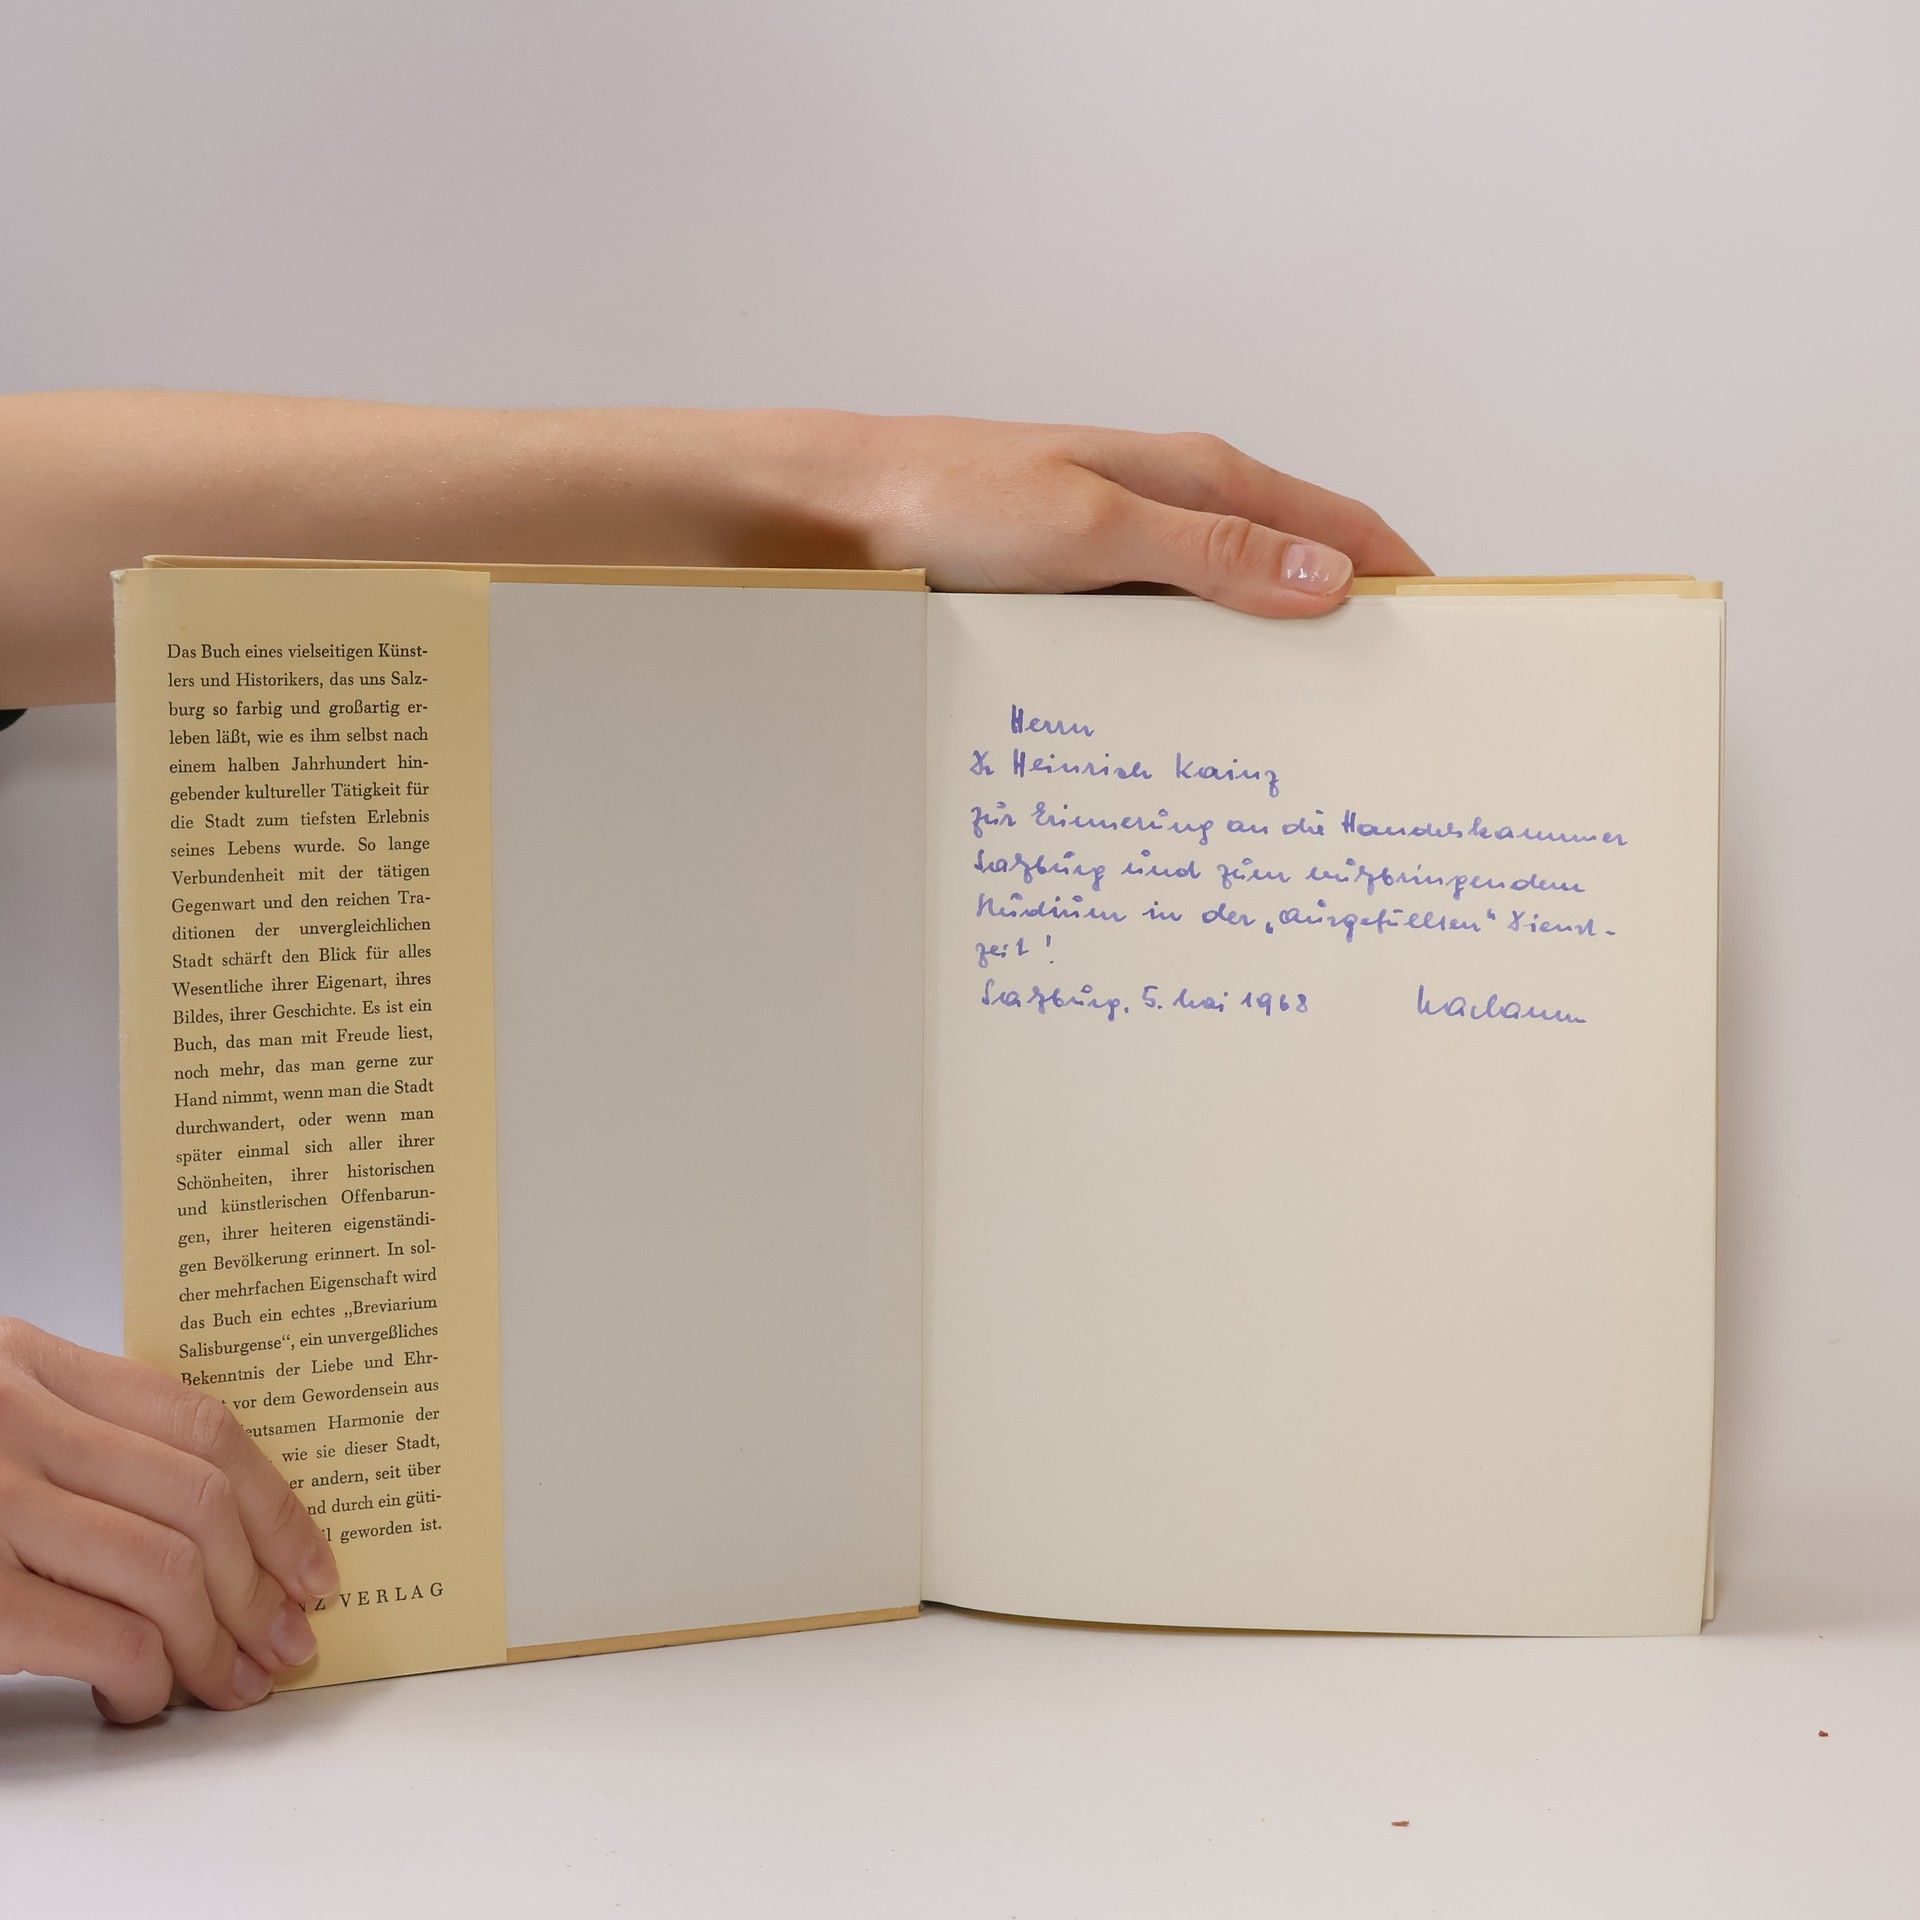 Das Buch eines vielseitigen Künst-
lers und Historikers, das uns Salz-
burg so farbig und großartig er-
leben läßt, wie es ihm selbst nach
einem halben Jahrhundert hin-
gebender kultureller Tätigkeit für
die Stadt zum tiefsten Erlebnis
seines Lebens wurde. So lange
Verbundenheit mit der tätigen
Gegenwart und den reichen Tra-
ditionen der unvergleichlichen
Stadt schärft den Blick für alles
Wesentliche ihrer Eigenart, ihres
Bildes, ihrer Geschichte. Es ist ein
Buch, das man mit Freude liest,
noch mehr, das man gerne zur
Hand nimmt, wenn man die Stadt
durchwandert, oder wenn man
später einmal sich aller ihrer
Schönheiten, ihrer historischen
und künstlerischen Offenbarun-
gen, ihrer heiteren eigenständi-
gen Bevölkerung erinnert. In sol-
cher mehrfachen Eigenschaft wird
das Buch ein echtes „Breviarium
Salisburgense“, ein unvergeßliches
Bekenntnis der Liebe und Ehr-
vor dem Gewordensein aus
eutsamen Harmonie der
wie sie dieser Stadt,
er andern, seit über
nd durch ein güti-
il geworden ist.
NZ VERLAG
Herrn
Dr Heinrich Kainz
zur Erinnerung an die Handelskammer
Salzburg und zum nutzbringendem
Studium in der „ausgefüllten“ Dienst-
zeit!
Salzburg, 5. Mai 1968